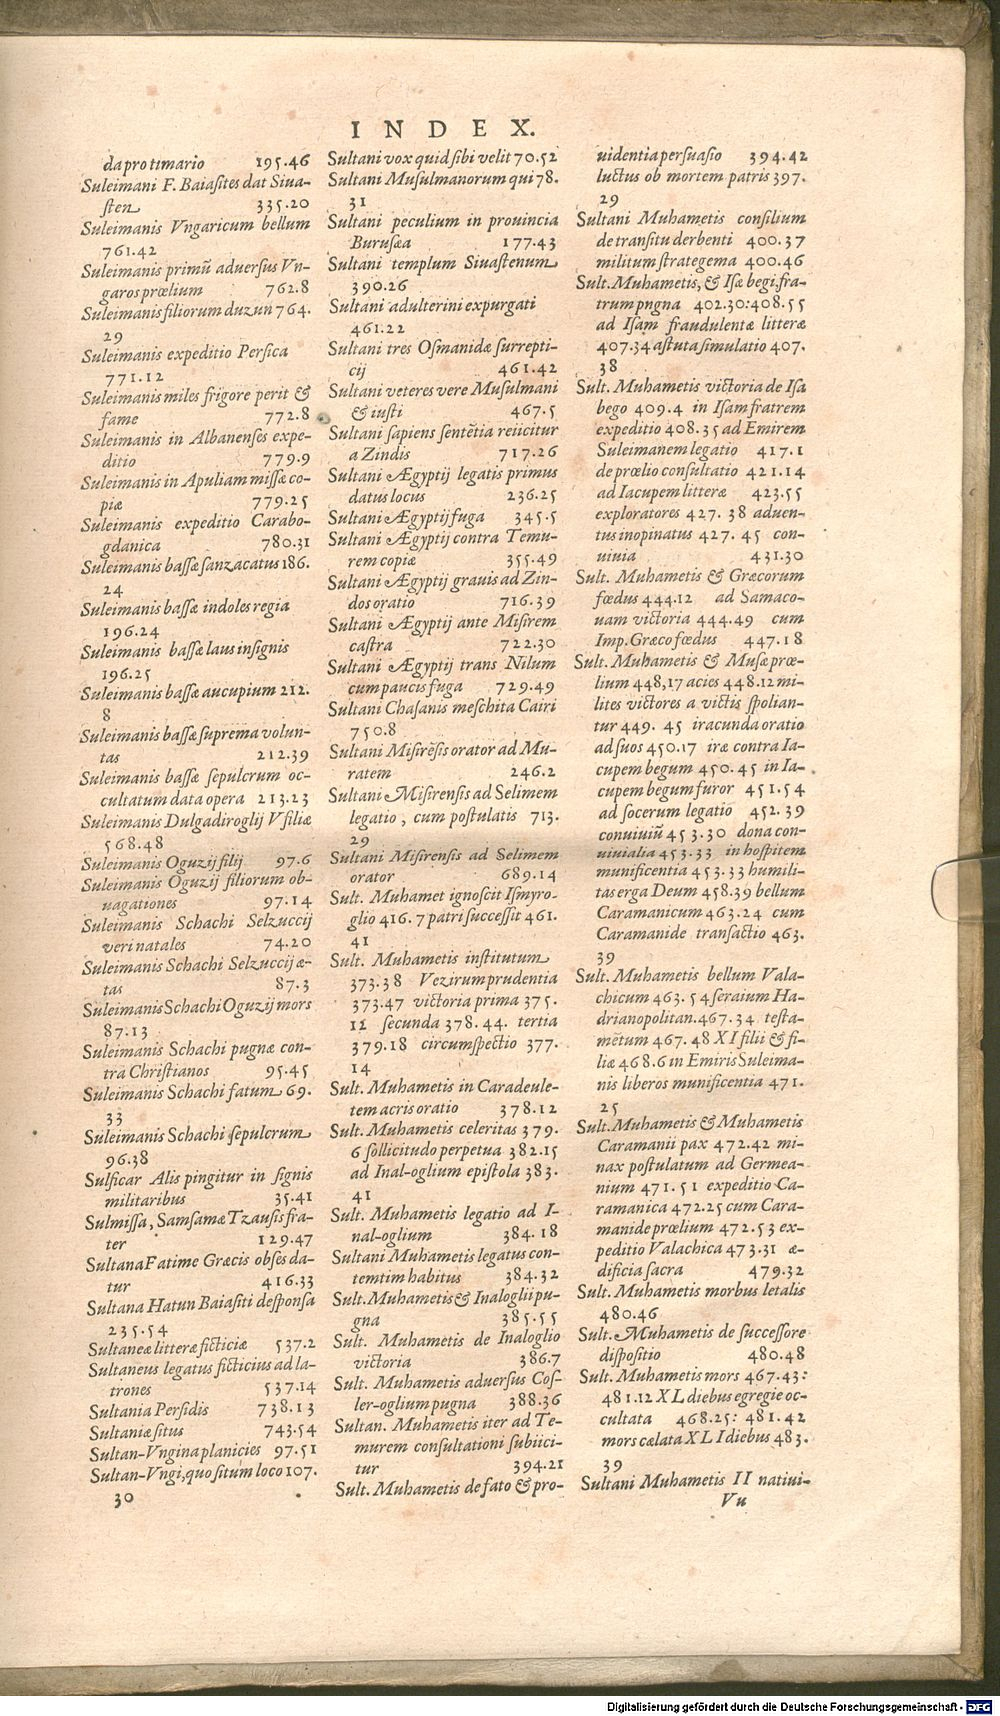 INDEX.
da pro timario 195.46
Suleimani F. Baiasites dat Siua-
sten 335.20
Suleimanis Vngaricum bellum
761.42
Suleimanis primũ aduersus Vn-
garos prœlium 762.8
Suleimanis filiorum duzun 764.
29
Suleimanis expeditio Persica
771.12
Suleimanis miles frigore perit &
fame 772.8
Suleimanis in Albanenses expe-
ditio 779.9
Suleimanis in Apuliam missæ co-
piæ 779.25
Suleimanis expeditio Carabo-
gdanica 780.31
Suleimanis bassæ sanzacatus 186.
24
Suleimanis bassæ indoles regia
196.24
Suleimanis bassæ laus insignis
196.25
Suleimanis bassæ aucupium 212.
8
Suleimanis bassæ suprema volun-
tas 212.39
Suleimanis bassæ sepulcrum oc-
cultatum data opera 213.23
Suleimanis Dulgadiroglij V filiæ
568.48
Suleimanis Oguzij filij 97.6
Suleimanis Oguzij filiorum ob-
uagationes 97.14
Suleimanis Schachi Selzuccij
veri natales 74.20
Suleimanis Schachi Selzuccij æ-
tas 87.3
Suleimanis Schachi Oguzij mors
87.13
Suleimanis Schachi pugnæ con-
tra Christianos 95.45
Suleimanis Schachi fatum 69.
33
Suleimanis Schachi sepulcrum
96.38
Sulficar Alis pingitur in signis
militaribus 35.41
Sulmissa, Samsamæ Tzausis fra-
ter 129.47
Sultana Fatime Græcis obses da-
tur 416.33
Sultana Hatun Baiasiti desponsa
235.54
Sultaneæ litteræ ficticiæ 537.2
Sultaneus legatus ficticius ad la-
trones 537.14
Sultania Persidis 738.13
Sultaniæ situs 743.54
Sultan-Vngina planicies 97.51
Sultan-Vngi, quo situm loco 107.
30
Sultani vox quid sibi velit 70.52
Sultani Musulmanorum qui 78.
31
Sultani peculium in prouincia
Burusæa 177.43
Sultani templum Siuastenum
390.26
Sultani adulterini expurgati
461.22
Sultani tres Osmanidæ surrepti-
cij 461.42
Sultani veteres vere Musulmani
& iusti 467.5
Sultani sapiens sentẽtia reiicitur
a Zindis 717.26
Sultani Ægyptij legatis primus
datus locus 236.25
Sultani Ægyptij fuga 345.5
Sultani Ægyptij contra Temu-
rem copiæ 355.49
Sultani Ægyptij grauis ad Zin-
dos oratio 716.39
Sultani Ægyptij ante Misirem
castra 722.30
Sultani Ægyptij trans Nilum
cum paucis fuga 729.49
Sultani Chasanis meschita Cairi
750.8
Sultani Misirẽsis orator ad Mu-
ratem 246.2
Sultani Misirensis ad Selimem
legatio, cum postulatis 713.
29
Sultani Misirensis ad Selimem
orator 689.14
Sult. Muhamet ignoscit Ismyro-
glio 416.7 patri successit 461.
41
Sult. Muhametis institutum
373.38 Vezirum prudentia
373.47 victoria prima 375.
12 secunda 378.44. tertia
379.18 circumspectio 377.
14
Sult. Muhametis in Caradeule-
tem acris oratio 378.12
Sult. Muhametis celeritas 379.
6 sollicitudo perpetua 382.15
ad Inal-oglium epistola 383.
41
Sult. Muhametis legatio ad I-
nal-oglium 384.18
Sultani Muhametis legatus con-
temtim habitus 384.32
Sult. Muhametis & Inaloglii pu-
gna 385.55
Sult. Muhametis de Inaloglio
victoria 386.7
Sult. Muhametis aduersus Cos-
ler-oglium pugna 388.36
Sultan. Muhametis iter ad Te-
murem consultationi subiici-
tur 394.21
Sult. Muhametis de fato & pro-
uidentia persuasio 394.42
luctus ob mortem patris 397.
29
Sultani Muhametis consilium
de transitu derbenti 400.37
militum strategema 400.46
Sult. Muhametis, & Isæ begi fra-
trum pngna 402.30: 408.55
ad Isam fraudulentæ litteræ
407.34 astuta simulatio 407.
38
Sult. Muhametis victoria de Isa
bego 409.4 in Isam fratrem
expeditio 408.35 ad Emirem
Suleimanem legatio 417.1
de prœlio consultatio 421.14
ad Iacupem litteræ 423.55
exploratores 427.38 aduen-
tus inopinatus 427.45 con-
uiuia 431.30
Sult. Muhametis & Græcorum
fœdus 444.12 ad Samaco-
uam victoria 444.49 cum
Imp. Græco fœdus 447.18
Sult. Muhametis & Musæ prœ-
lium 448,17 acies 448.12 mi-
lites victores a victis spolian-
tur 449.45 iracunda oratio
ad suos 450.17 iræ contra Ia-
cupem begum 450.45 in Ia-
cupem begum furor 451.54
ad socerum legatio 452.39
conuiuiũ 453.30 dona con-
uiuialia 453.33 in hospitem
munificentia 453.33 humili-
tas erga Deum 458.39 bellum
Caramanicum 463.24 cum
Caramanide transactio 463.
39
Sult. Muhametis bellum Vala-
chicum 463.54 seraium Ha-
drianopolitan. 467.34 testa-
mẽtum 467.48 XI filii & fi-
liæ 468.6 in Emiris Suleima-
nis liberos munificentia 471.
25
Sult. Muhametis & Muhametis
Caramanii pax 472.42 mi-
nax postulatum ad Germea-
nium 471.51 expeditio Ca-
ramanica 472.25 cum Cara-
manide prœlium 472.53 ex-
peditio Valachica 473.31 æ-
dificia sacra 479.32
Sult. Muhametis morbus letalis
480.46
Sult. Muhametis de successore
dispositio 480.48
Sult. Muhametis mors 467.43:
481.12 XL diebus egregie oc-
cultata 468.25: 481.42
mors cælata XLI diebus 483.
39
Sultani Muhametis II natiui-
Vu
Digitalisierung gefördert durch die Deutsche Forschungsgemeinschaft - DFG